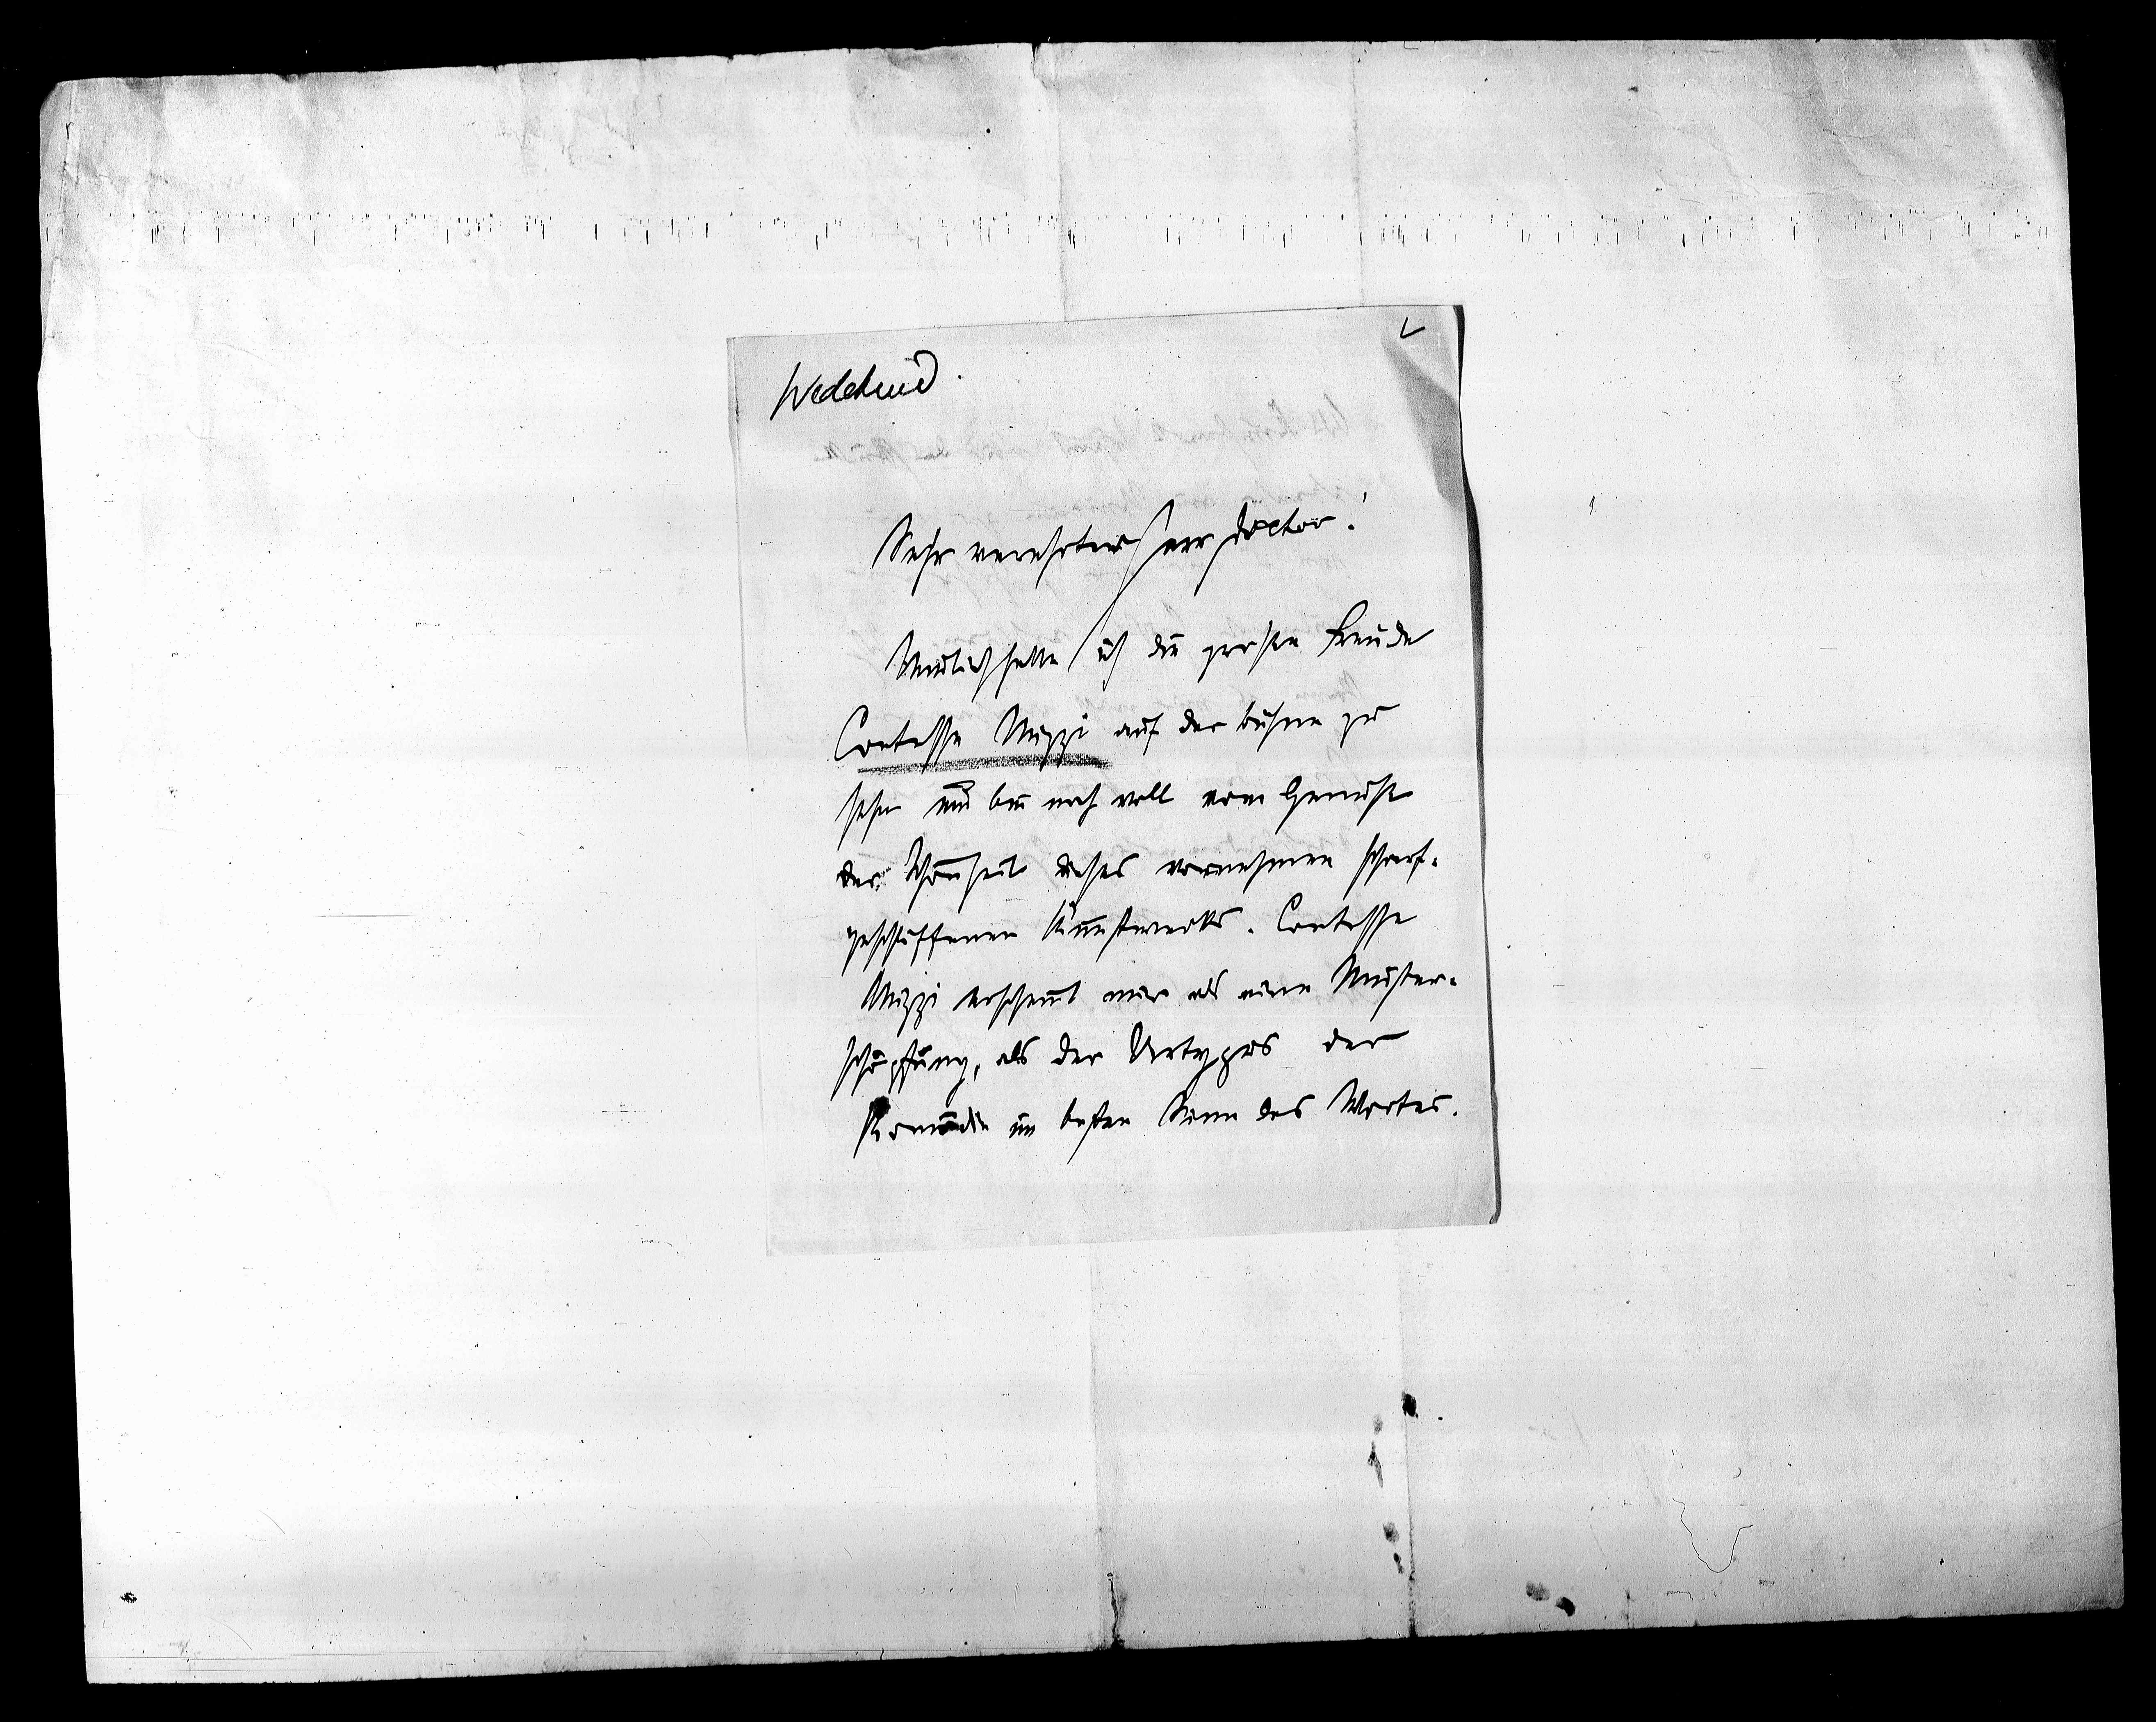 Wedekind.
Sehr verehrter Herr Doctor!
Neulich hatte ich die große Freude
Contesse Mizzi auf der Bühne zu
sehn und bin noch voll vom Genuß
der Schönheit dieses vornehmen scharf-
geschliffenen Kunstwerks. Contesse
Mizzi erscheint mir als eine Muster-
schöpfung, als der Urtypus der
Komödie im besten Sinn des Wortes.